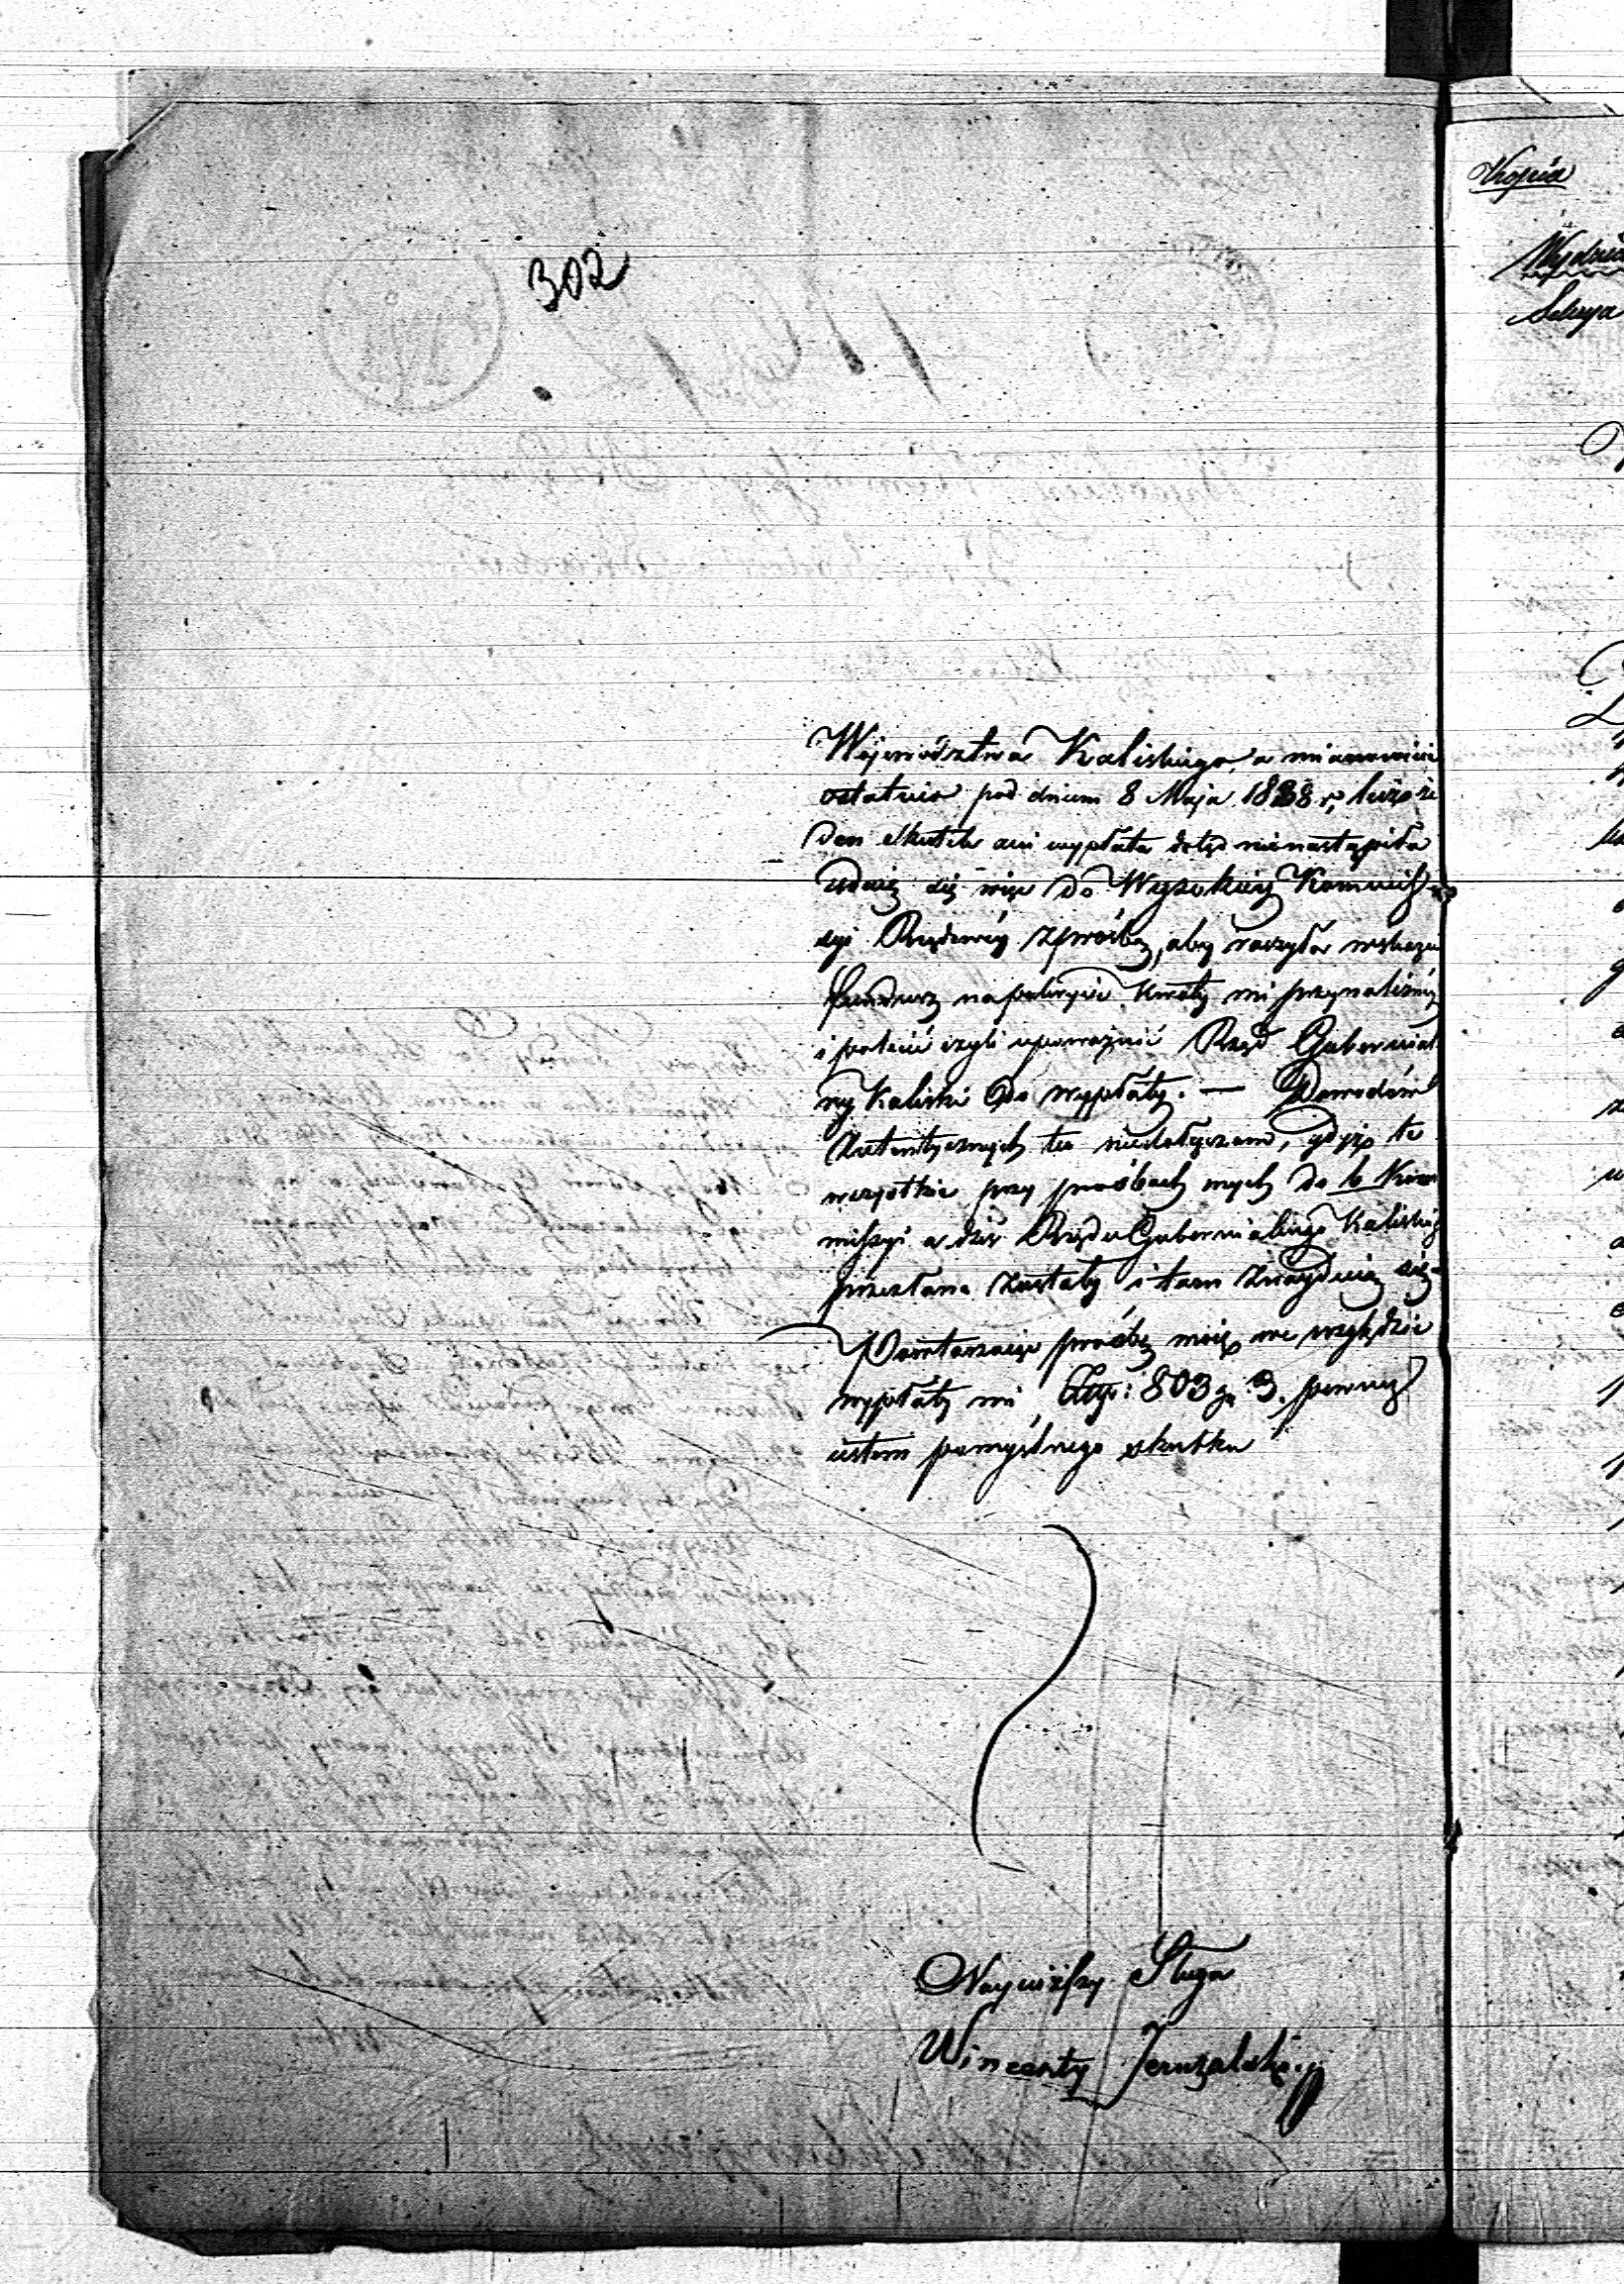 302
Województwa Kaliskiego, a mianowicie
ostatnio pod dniem 8 Maja 1838 r, lecz że
den skutek ani wypłata dotąd nienastąpiła
udaię się więc do Wysokiey Kommis
syi Rządowey z prośbą, aby raczyła wskazać
fundusz na pokrycie kwoty mi przynależney
i polecić czyli upoważnić Rząd Gubernial
ny Kaliski do wypłaty. — Dowodów
autentycznych tu niedołączam, gdyż te
wszystkie przy prośbach mych do b. Kom
missyi a dziś Rządu Gubernialnego Kaliskiego
przesłane zostały i tam znayduią się
Powtarzaiąc prośbę moię we względzie
wypłaty mi Złtp: 803 gr 3. pewny
estem pomyślnego skutku
Nayniższy Sługa
Wincenty Jeruzalski
Kopia